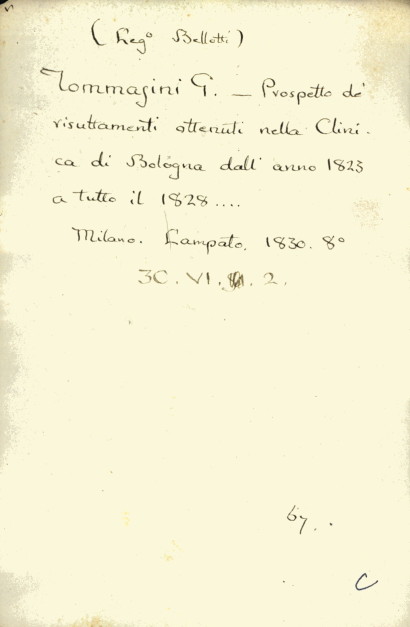 (Leg° Bellotti)
Tommasini G. — Prospetto de'
risultamenti ottenuti nella Clini-
ca di Bologna dall' anno 1823
a tutto il 1828....
Milano. Lampato. 1830. 8°
3C. VI. 2.
67.
C